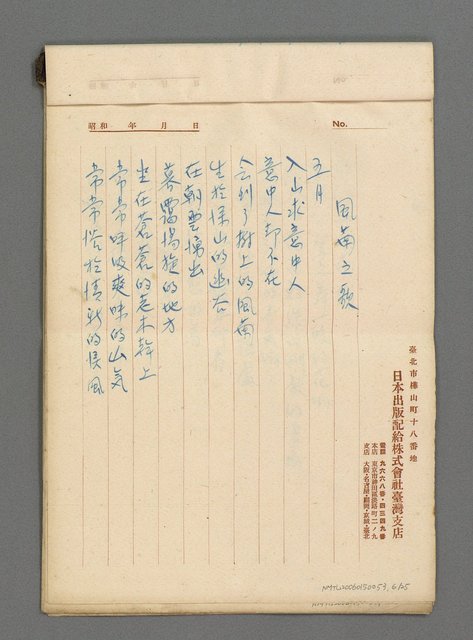 昭和　年　月　日
No.
風蘭之歌
五月
入山求意中人
意中人却不在
会到了樹上的風蘭
生於深山的幽谷
在朝雲湧出
暮靄揚旋的地方
坐在蒼蒼的老木幹上
常常呼吸爽味的山気
常常搭於清新的涼風
臺北市樺山町十八番地
日本出版配給株式會社臺灣支店
電話 九六六八番・四三四九番
本店 東京市神田區淡路町二ノ九
支店 大阪・名古屋・福岡・京城・臺北
NMTL20060150053 6/25